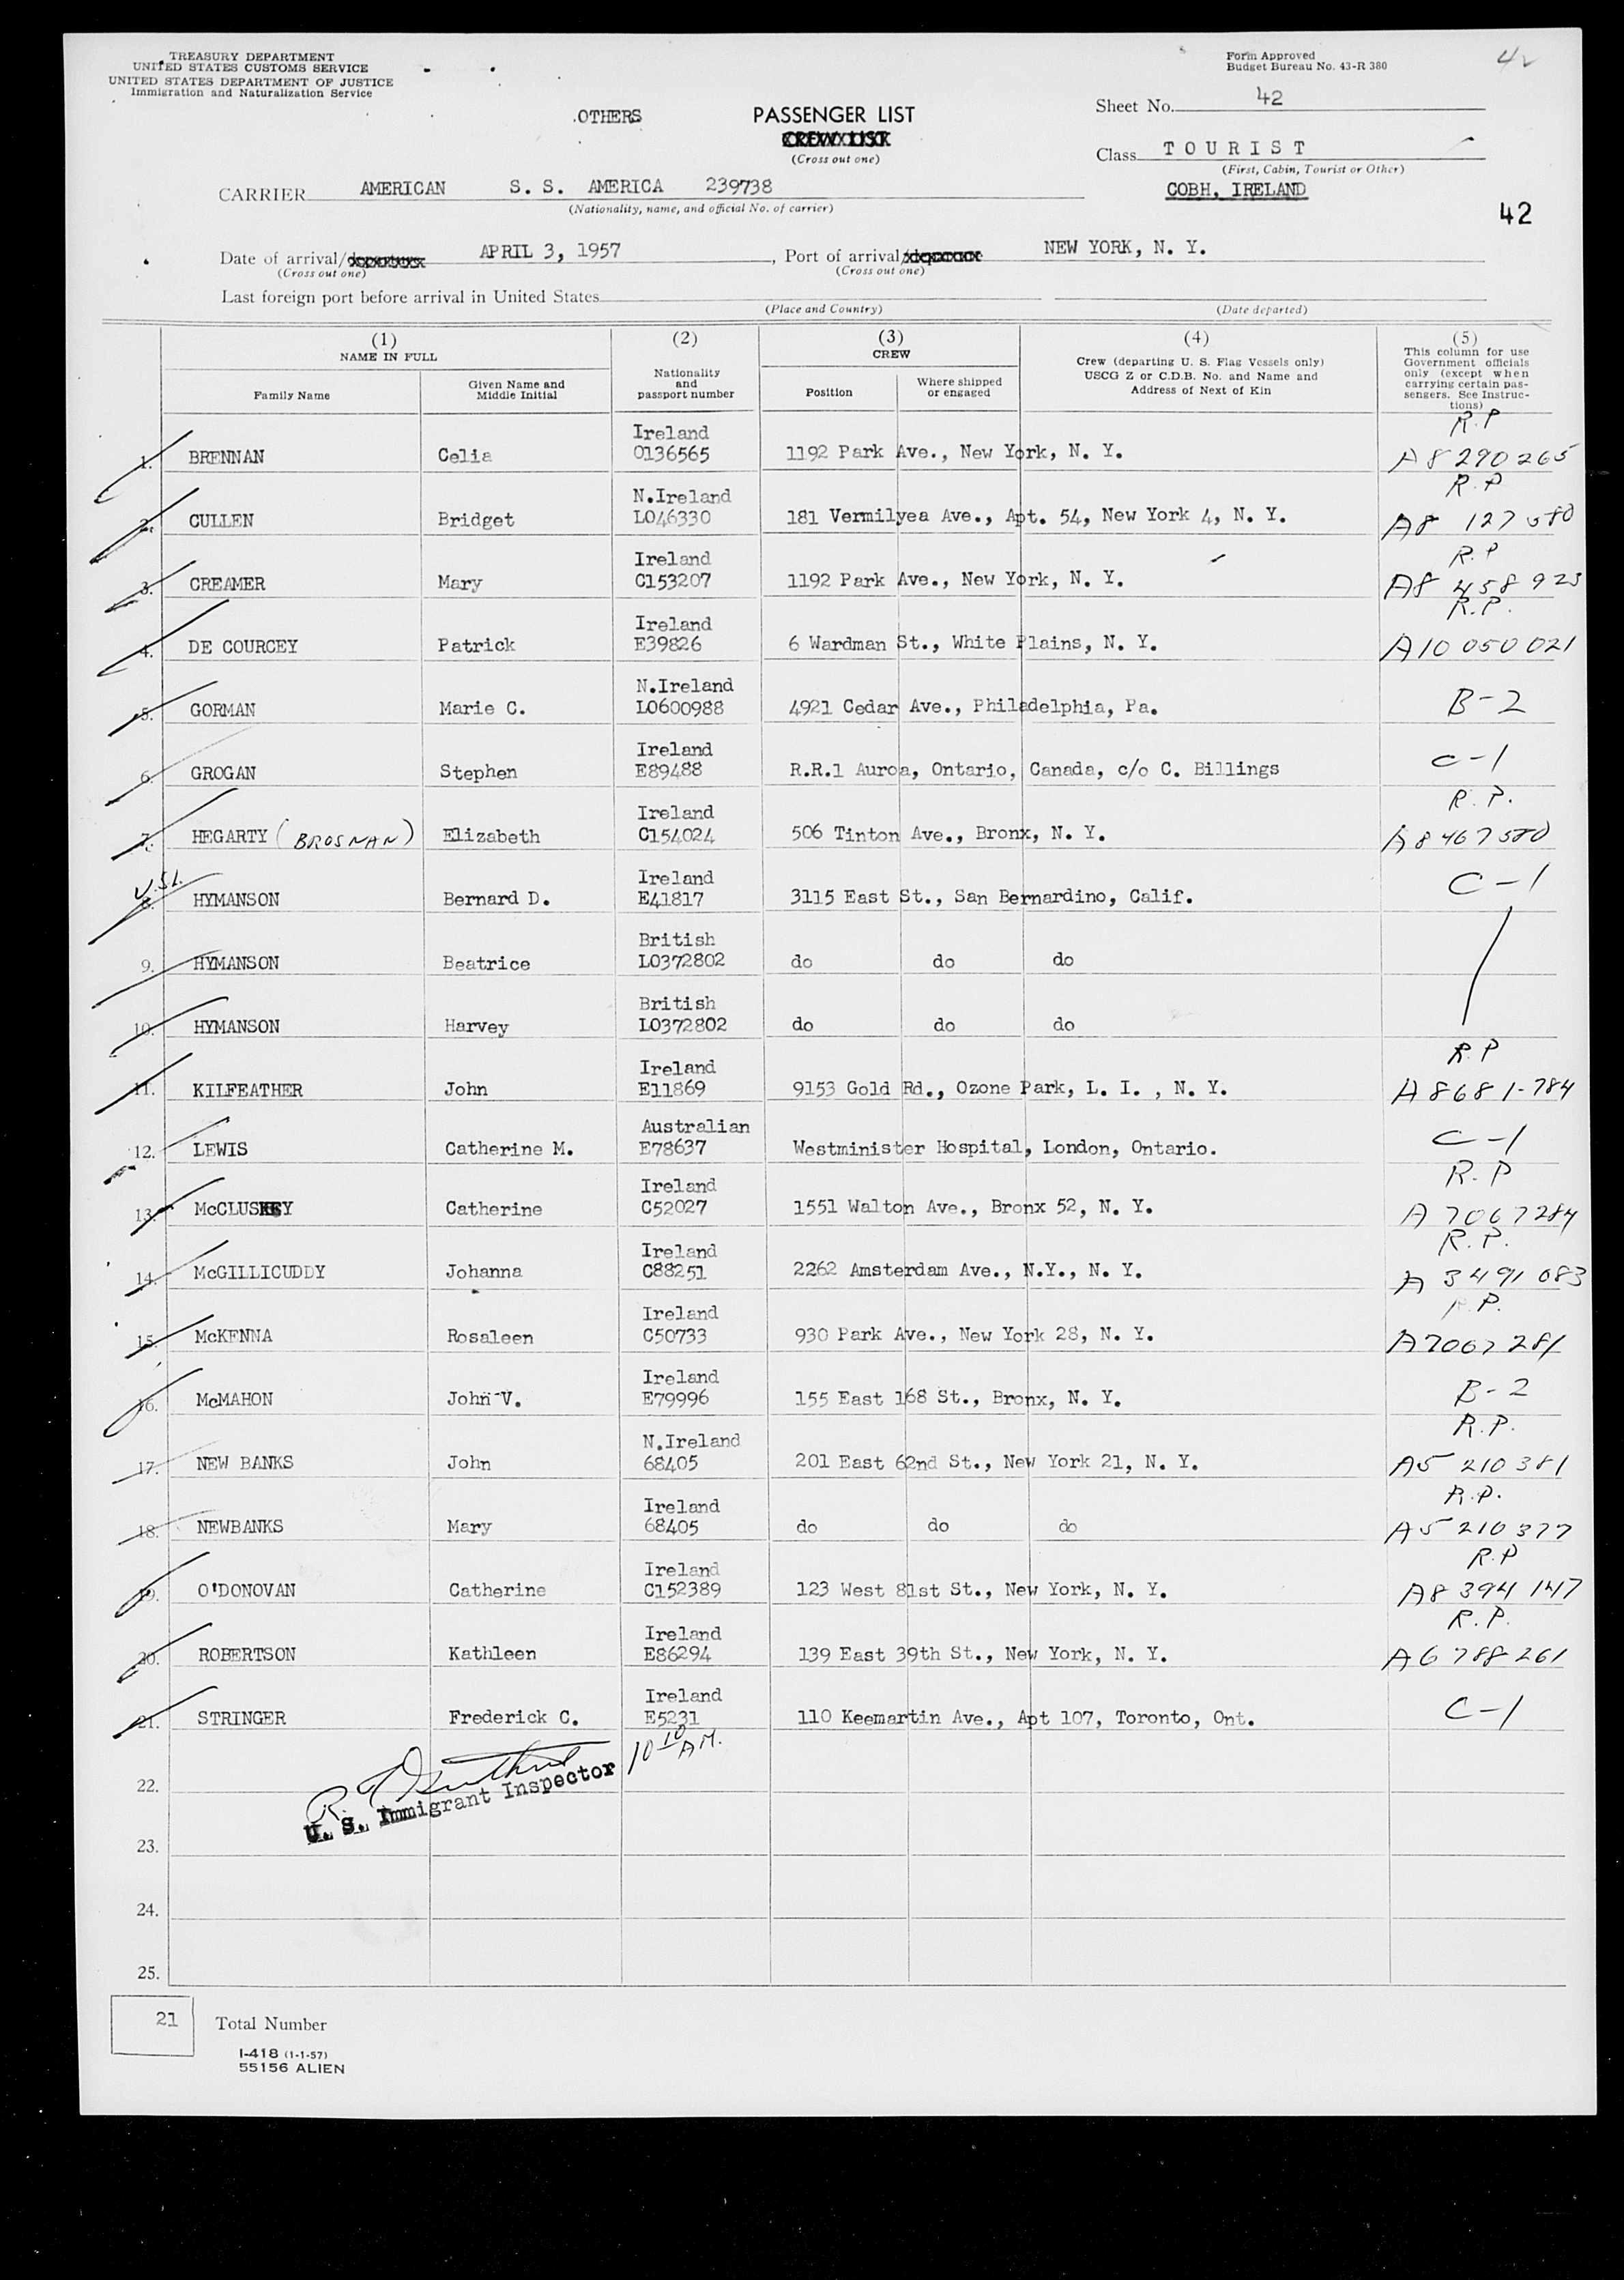 TREASURY DEPARTMENT
UNITED STATES CUSTOMS SERVICE
UNITED STATES DEPARTMENT OF JUSTICE
Immigration and Naturalization Service
Form Approved
Budget Bureau No. 43-R 380
42
OTHERS
PASSENGER LIST
CREW LIST
(Cross out one)
Sheet No. 42
Class TOURIST
(First, Cabin, Tourist or Other)
COBH, IRELAND
42
CARRIER AMERICAN S. S. AMERICA 239738
(Nationality, name, and official No. of carrier)
Date of arrival/departure APRIL 3, 1957, Port of arrival/departure NEW YORK, N. Y.
(Cross out one) (Cross out one)
Last foreign port before arrival in United States
(Place and Country) (Date departed)
(1) NAME IN FULL
Family Name
Given Name and Middle Initial
(2) Nationality and passport number
(3) CREW
Position
Where shipped or engaged
(4) Crew (departing U. S. Flag Vessels only) USCG Z or C.D.B. No. and Name and Address of Next of Kin
(5) This column for use Government officials only (except when carrying certain passengers. See Instructions)
Ireland R.P
1. BRENNAN Celia 0136565 1192 Park Ave., New York, N. Y. A8 290 265
N.Ireland R.P
2. CULLEN Bridget L046330 181 Vermilyea Ave., Apt. 54, New York 4, N. Y. A8 127 580
Ireland R.P
3. CREAMER Mary C153207 1192 Park Ave., New York, N. Y. A8 458 923
Ireland R.P.
4. DE COURCEY Patrick E39826 6 Wardman St., White Plains, N. Y. A10 050 021
N.Ireland
5. GORMAN Marie C. L0600988 4921 Cedar Ave., Philadelphia, Pa. B-2
Ireland
6. GROGAN Stephen E89488 R.R.1 Auroa, Ontario, Canada, c/o C. Billings C-1
Ireland R.P.
7. HEGARTY (BROSNAN) Elizabeth C154024 506 Tinton Ave., Bronx, N. Y. A8 467 580
Ireland
8. HYMANSON Bernard D. E41817 3115 East St., San Bernardino, Calif. C-1
British
9. HYMANSON Beatrice L0372802 do do do
British
10. HYMANSON Harvey L0372802 do do do
Ireland R.P
11. KILFEATHER John E11869 9153 Gold Rd., Ozone Park, L. I. , N. Y. A 8681-784
Australian
12. LEWIS Catherine M. E78637 Westminister Hospital, London, Ontario. C-1
Ireland R.P
13. McCLUSKEY Catherine C52027 1551 Walton Ave., Bronx 52, N. Y. A 7067284
Ireland R.P.
14. McGILLICUDDY Johanna C88251 2262 Amsterdam Ave., N.Y., N. Y. A 3491 083
Ireland R.P.
15. McKENNA Rosaleen C50733 930 Park Ave., New York 28, N. Y. A7067 281
Ireland
16. McMAHON John V. E79996 155 East 168 St., Bronx, N. Y. B-2
N.Ireland R.P.
17. NEW BANKS John 68405 201 East 62nd St., New York 21, N. Y. A5 210 381
Ireland R.P.
18. NEWBANKS Mary 68405 do do do A5 210 377
Ireland R.P
19. O'DONOVAN Catherine C152389 123 West 81st St., New York, N. Y. A8 394 147
Ireland R.P.
20. ROBERTSON Kathleen E86294 139 East 39th St., New York, N. Y. A6 788 261
Ireland
21. STRINGER Frederick C. E5231 110 Keemartin Ave., Apt 107, Toronto, Ont. C-1
10 10 AM.
U. S. Immigrant Inspector
22.
23.
24.
25.
21 Total Number
I-418 (1-1-57)
55156 ALIEN